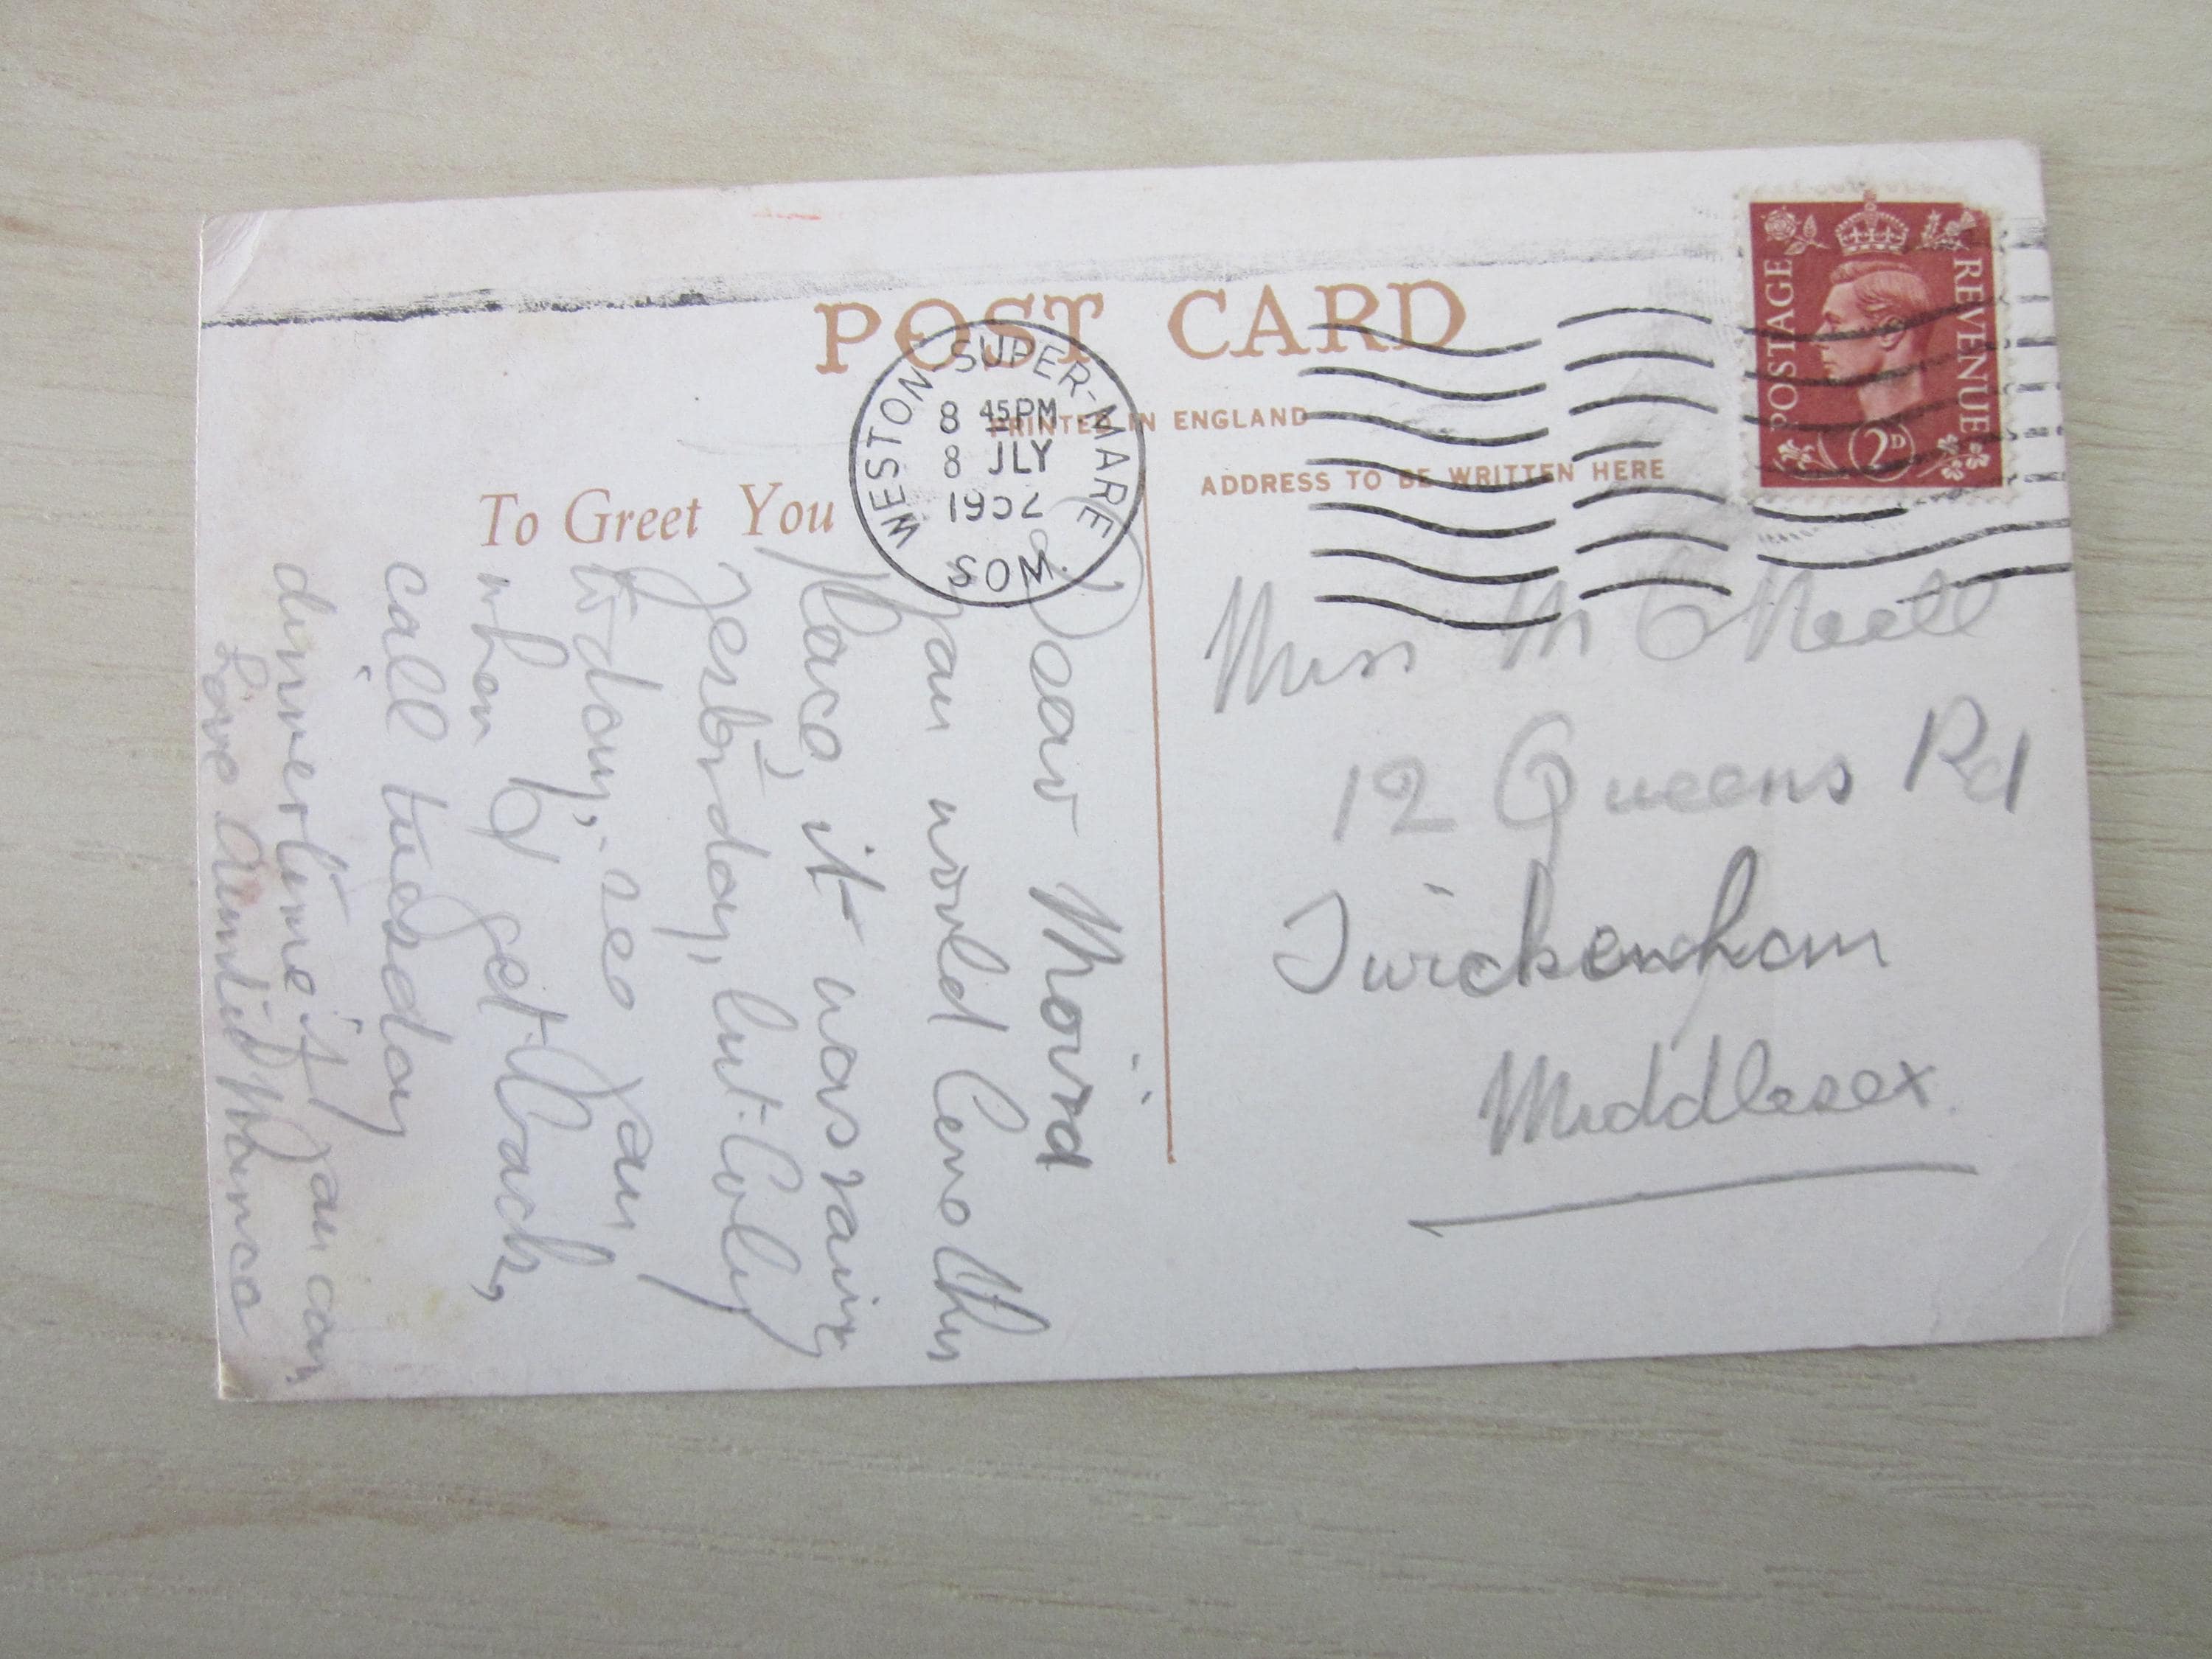 POST CARD
PRINTED IN ENGLAND
ADDRESS TO BE WRITTEN HERE
To Greet You
WESTON-SUPER-MARE
8 45PM
8 JLY
1952
SOM.
POSTAGE
REVENUE
2D
Miss M O Neill
12 Queens Rd
Twickenham
Middlesex.
Dear Moira
you would love this
place, it was rainy
yesterday, but lovly
to day, see you
when I get back,
call tuesday
dinnertime if you can,
Love Auntie